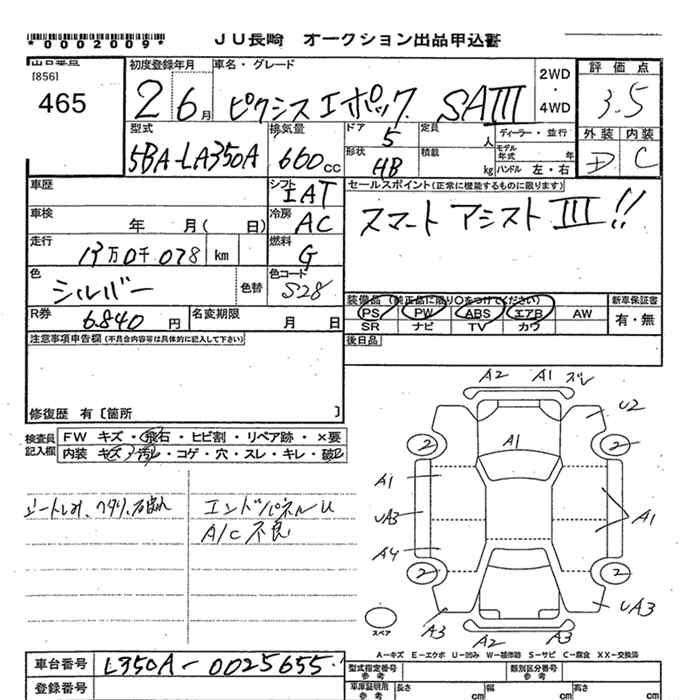 *0002009*
JU長崎 オークション出品申込書
[856]
465
初度登録年月
2 6月
車名・グレード
ピクシスエポック SAIII
2WD
・
4WD
評価点
3.5
外装 内装
D C
型式
5BA-LA350A
排気量
660cc
ドア
5
定員
人
形状
HB
積載
kg
ディーラー・並行
モデル年式 年
ハンドル 左・右
車歴
シフト
IAT
セールスポイント(正常に機能するものに限ります)
スマートアシストIII!!
車検
年 月( 日)
冷房
AC
走行
13万0千078 km
燃料
G
色
シルバー
色替
色コード
S28
R券
6840円
名変期限
月 日
装備品(純正品に限り○をつけてください)
PS PW ABS エアB AW
SR ナビ TV カワ
新車保証書
有・無
注意事項申告欄(不具合内容等は具体的に記入して下さい)
後日品
修復歴 有〔箇所 〕
検査員記入欄
FW キズ・飛石・ヒビ割・リペア跡・×要
内装 キズ・汚れ・コゲ・穴・スレ・キレ・破レ
エンドパネルU
A/C不良
A2 A1 ズレ
U2
2 2
A1
A1
UA3
A1
A4
2 2
A3
UA3
A2 A3
スペア
A-キズ E-エクボ U-凹み W-補修跡 S-サビ C-腐食 XX-交換済
車台番号
L350A-0025655
登録番号
型式指定番号
参考
類別区分番号
参考
車庫証明用
参考
長さ cm
幅 cm
高さ cm